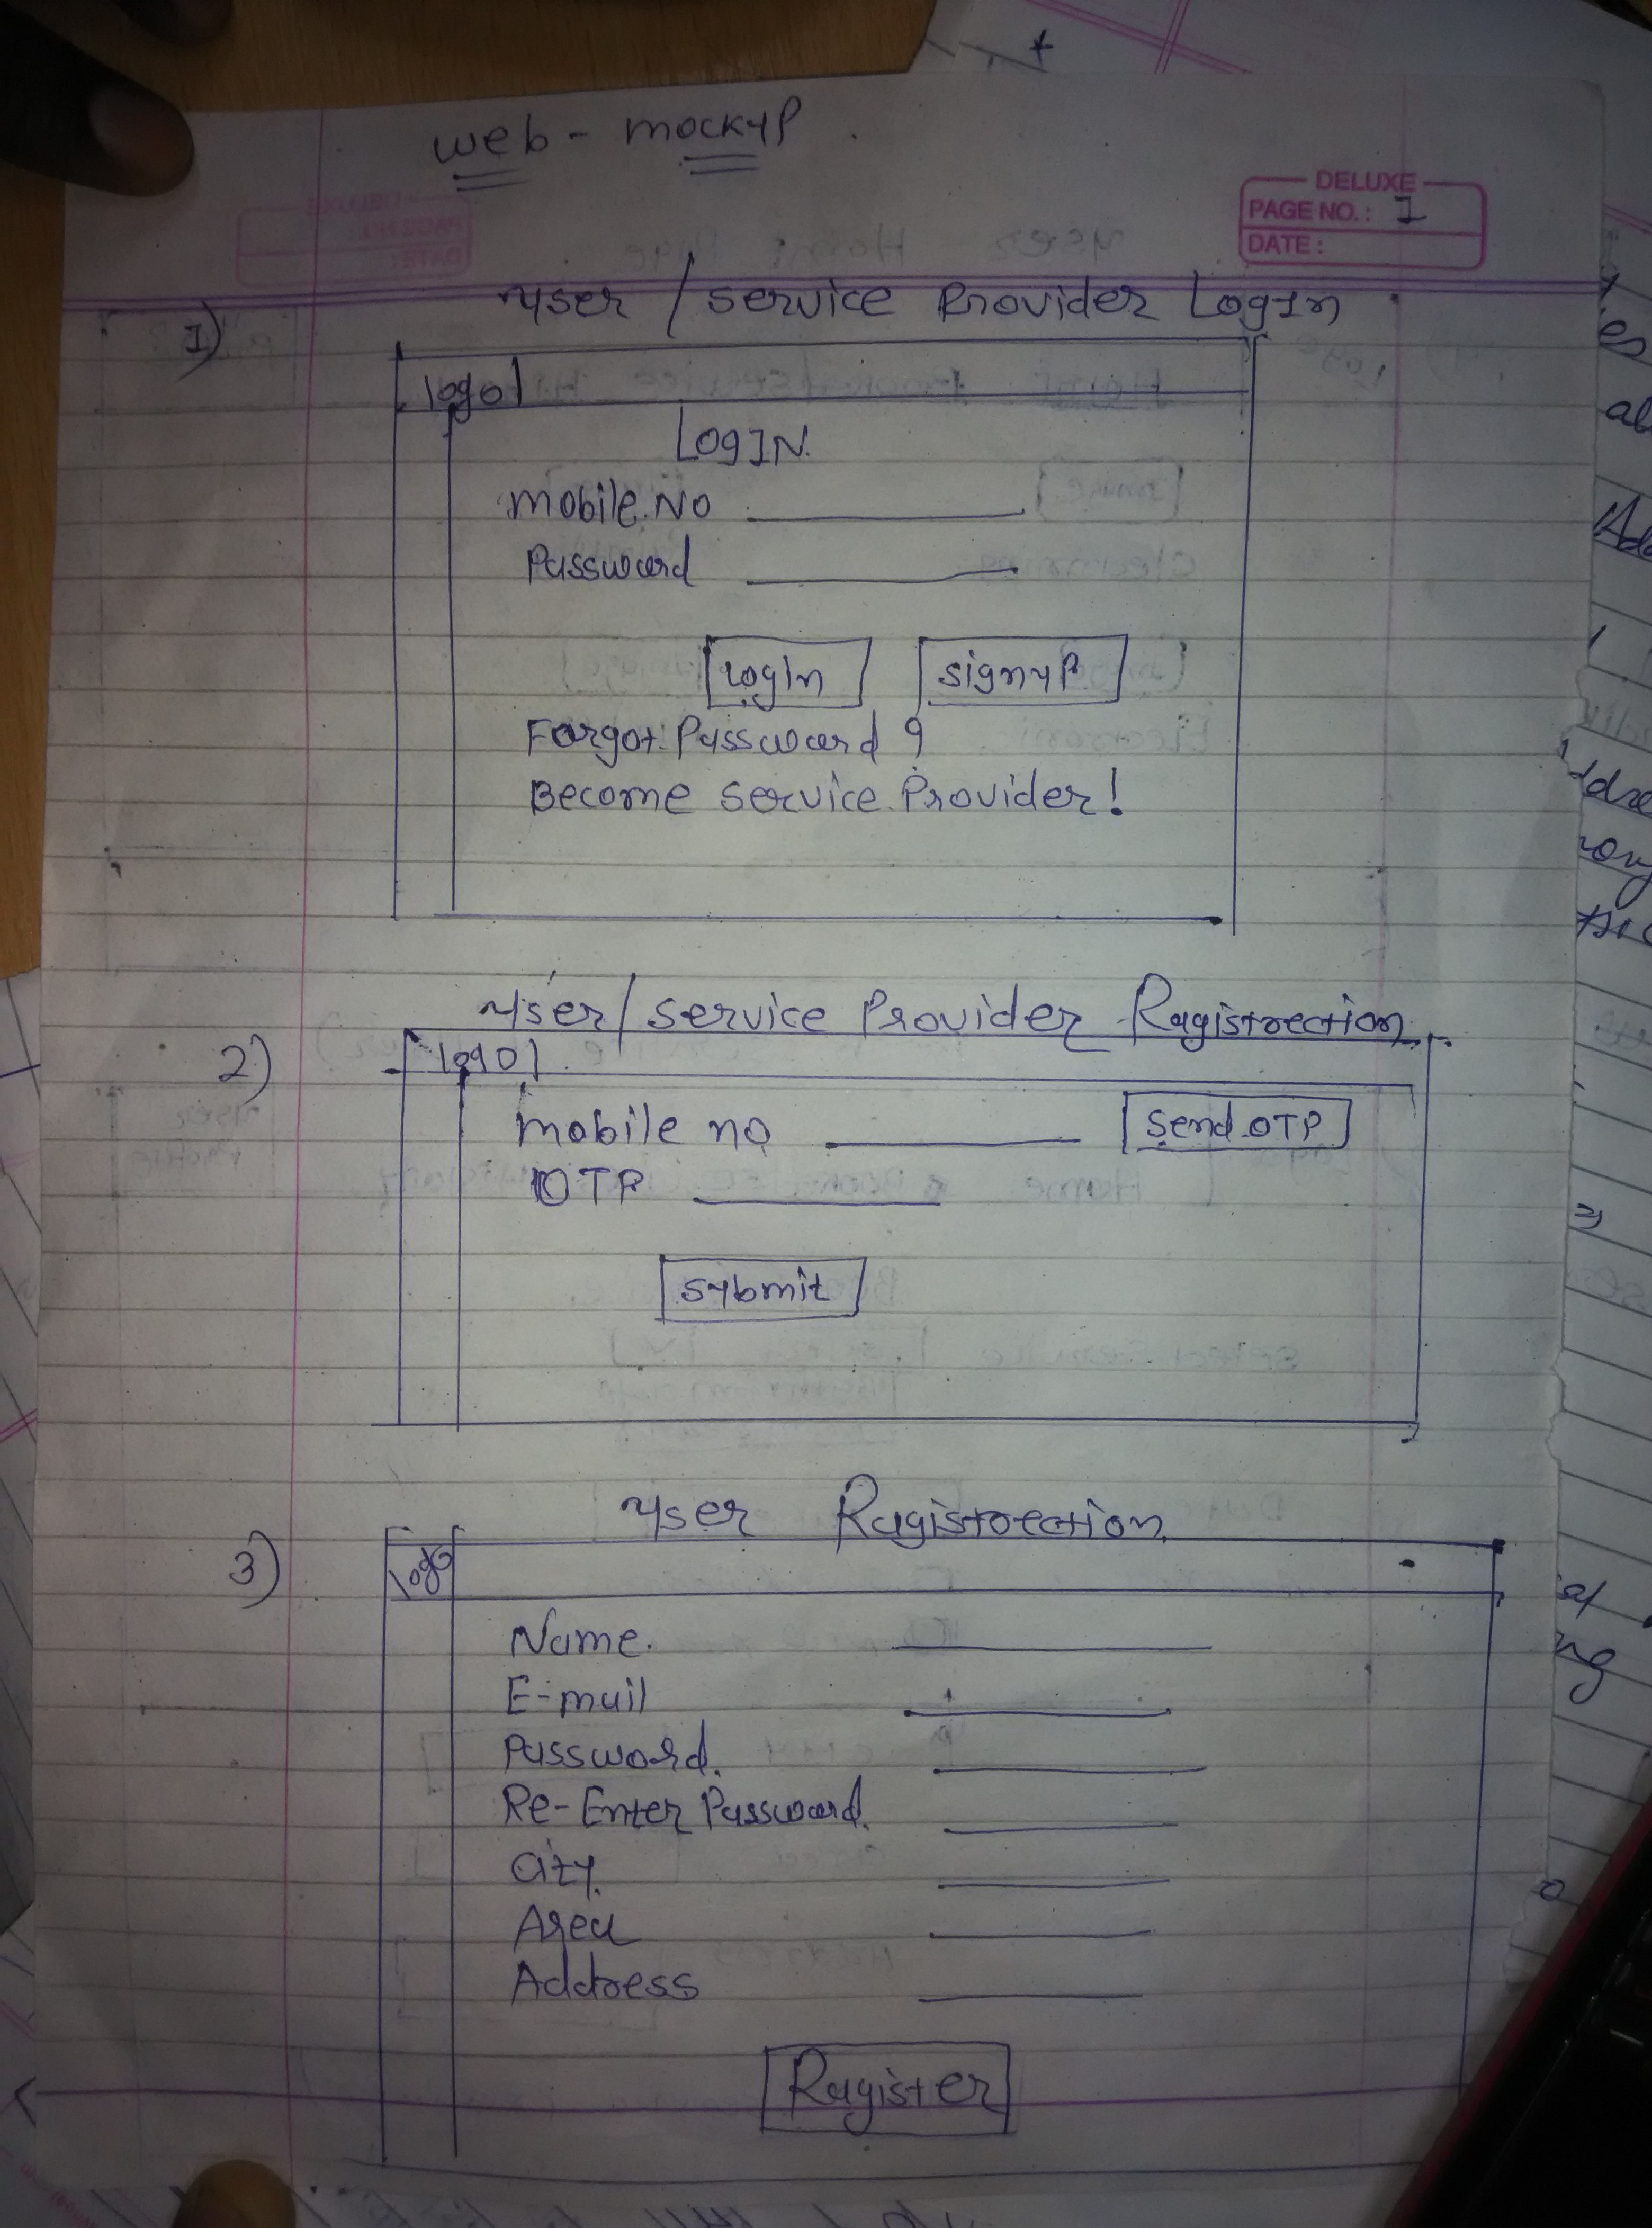 web - mockup
DELUXE
PAGE NO.: 1
DATE:
1) user / service Provider LogIn
logo
LOGIN
Mobile.No
Password
LogIn signup
Forgot Password ?
Become service Provider!
2) user / service Provider Ragistrection
logo
mobile no send OTP
OTP
submit
3) user Ragistrection
logo
Name.
E-mail
Password.
Re-Enter Password.
City.
Area
Address
Ragister